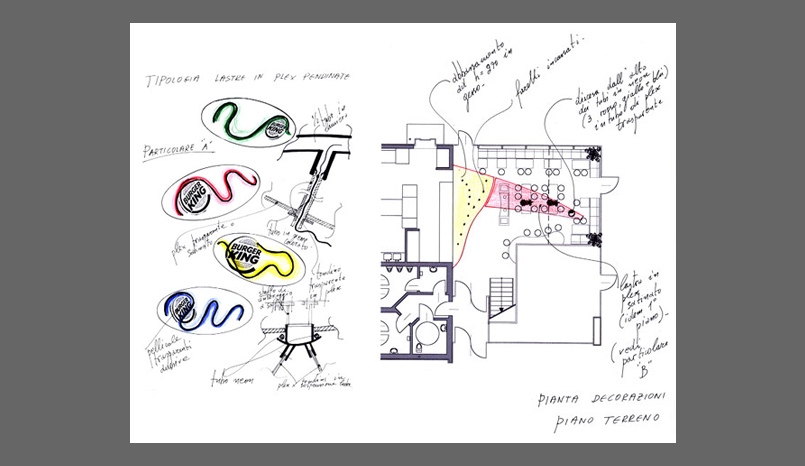 TIPOLOGIA LASTRE IN PLEX PENDINATE
PARTICOLARE "A"
BURGER
KING
BURGER
KING
BURGER
KING
BURGER
KING
plex trasparente o
satinato
tubo in
tubo neon
pellicole
trasparenti
adesive
tondino
trasparente
in plex
abbassamento
ad h= 270 in
gesso
faretti incassati.
discesa dall'alto
dei tubi in neon
(3 rosso, giallo e blu)
in tubo di plex
trasparente
lastra in
plex
satinato
(idem 1°
piano)
(vedi
particolare
"B"
PIANTA DECORAZIONI
PIANO TERRENO